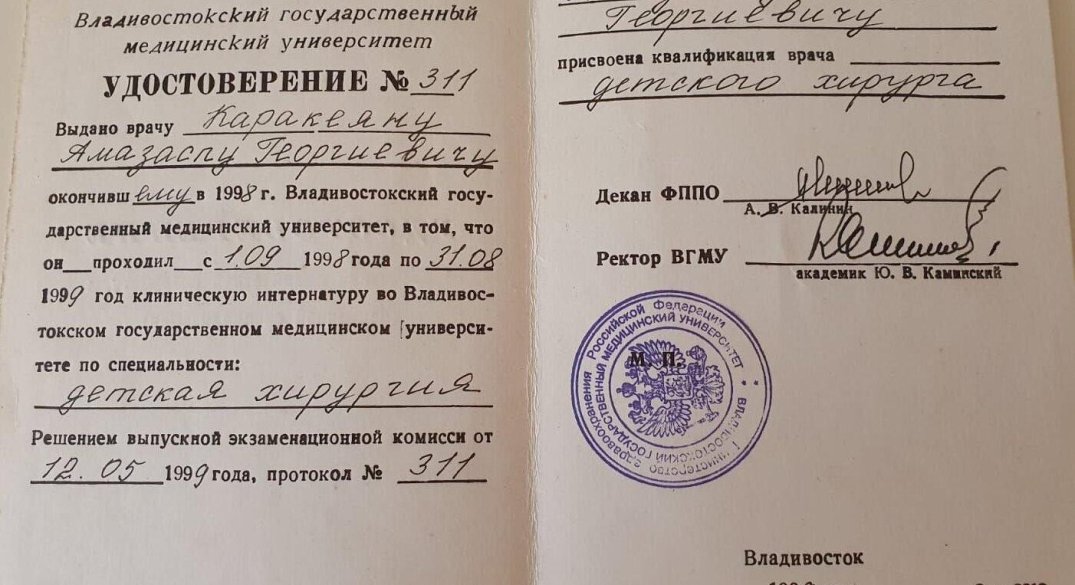 Владивостокский государственный
медицинский университет
УДОСТОВЕРЕНИЕ № 311
Выдано врачу Каракеяну
Амазаспу Георгиевичу
окончившему в 1998 г. Владивостокский госу-
дарственный медицинский университет, в том, что
он проходил с 1.09 1998 года по 31.08
1999 год клиническую интернатуру во Владивос-
токском государственном медицинском универси-
тете по специальности:
детская хирургия
Решением выпускной экзаменационной комисси от
12.05 1999 года, протокол № 311
Георгиевичу
присвоена квалификация врача
детского хирурга
Декан ФППО
А. В. Калинин
Ректор ВГМУ
академик Ю. В. Каминский
М. П.
Министерство здравоохранения Российской Федерации
Владивостокский государственный медицинский университет
Владивосток